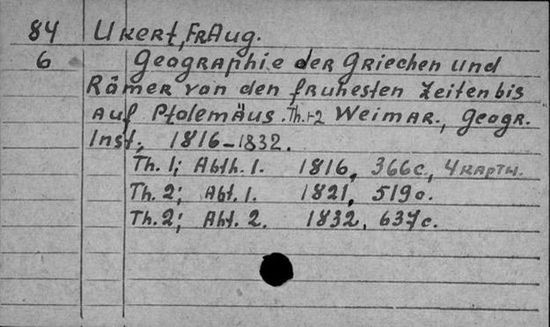 84 Ukert, Fr Aug.
6 Geographie der Griechen und
Rämer van den fruhesten Zeiten bis
auf Ptolemäus. Th. 1-2 Weimar., Geogr.
Inst., 1816-1832.
Th. 1; Abth. 1. 1816, 366c., 4 карты.
Th. 2; Abt. 1. 1821, 519c.
Th. 2; Abt. 2. 1832, 637c.